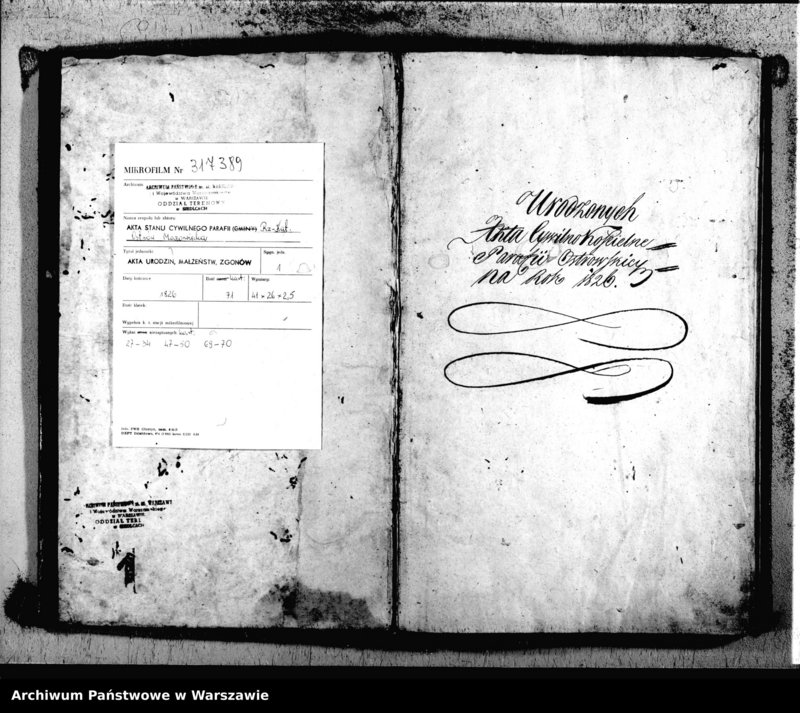 MIKROFILM Nr 317389
Archiwum ARCHIWUM PAŃSTWOWE m. st. WARSZAWY
i Województwa Warszawskiego
w WARSZAWIE
ODDZIAŁ TERENOWY
w SIEDLCACH
Nazwa zespołu lub zbioru
AKTA STANU CYWILNEGO PARAFII (GMINY) Rz-Kat.
Ostrów Mazowiecka
Tytuł jednostki
AKTA URODZIN, MAŁŻEŃSTW, ZGONÓW
Sygn. jedn.
1
Daty krańcowe
1826
Ilość kart.
71
Wymiary:
41 × 26 × 2,5
Ilość klatek:
Wypełnia k. z stacji mikrofilmowej
Wykaz szczątkowych kart.
27-34 47-50 69-70
ARCHIWUM PAŃSTWOWE m. st. WARSZAWY
i Województwa Warszawskiego
w WARSZAWIE
ODDZIAŁ TERE
w SIEDLCACH
1
Urodzonych
Akta Cywilno Kościelne
Parafii Ostrowskiey
na Rok 1826.
Archiwum Państwowe w Warszawie